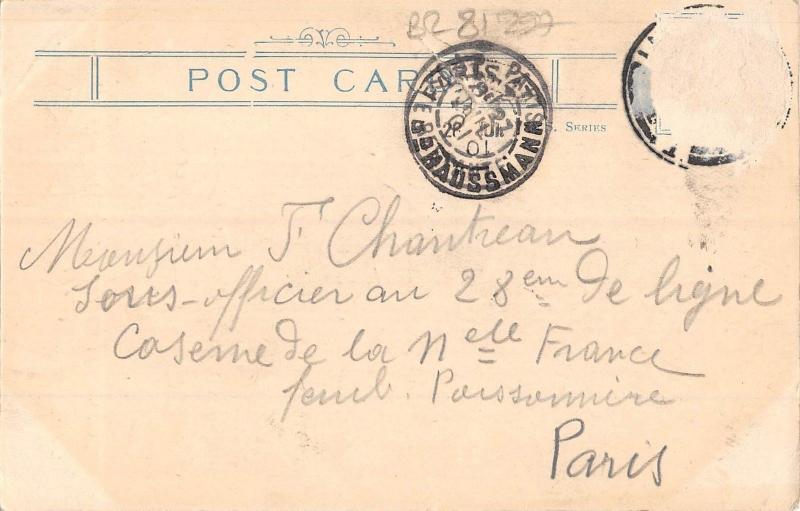 BR 81
POST CAR
S. SERIES
PARIS
Bd HAUSSMANN
01
Monsieur F Chantreau
Sous-officier au 28em de ligne
Caserne de la Nelle France
faub. Poissonnière
Paris